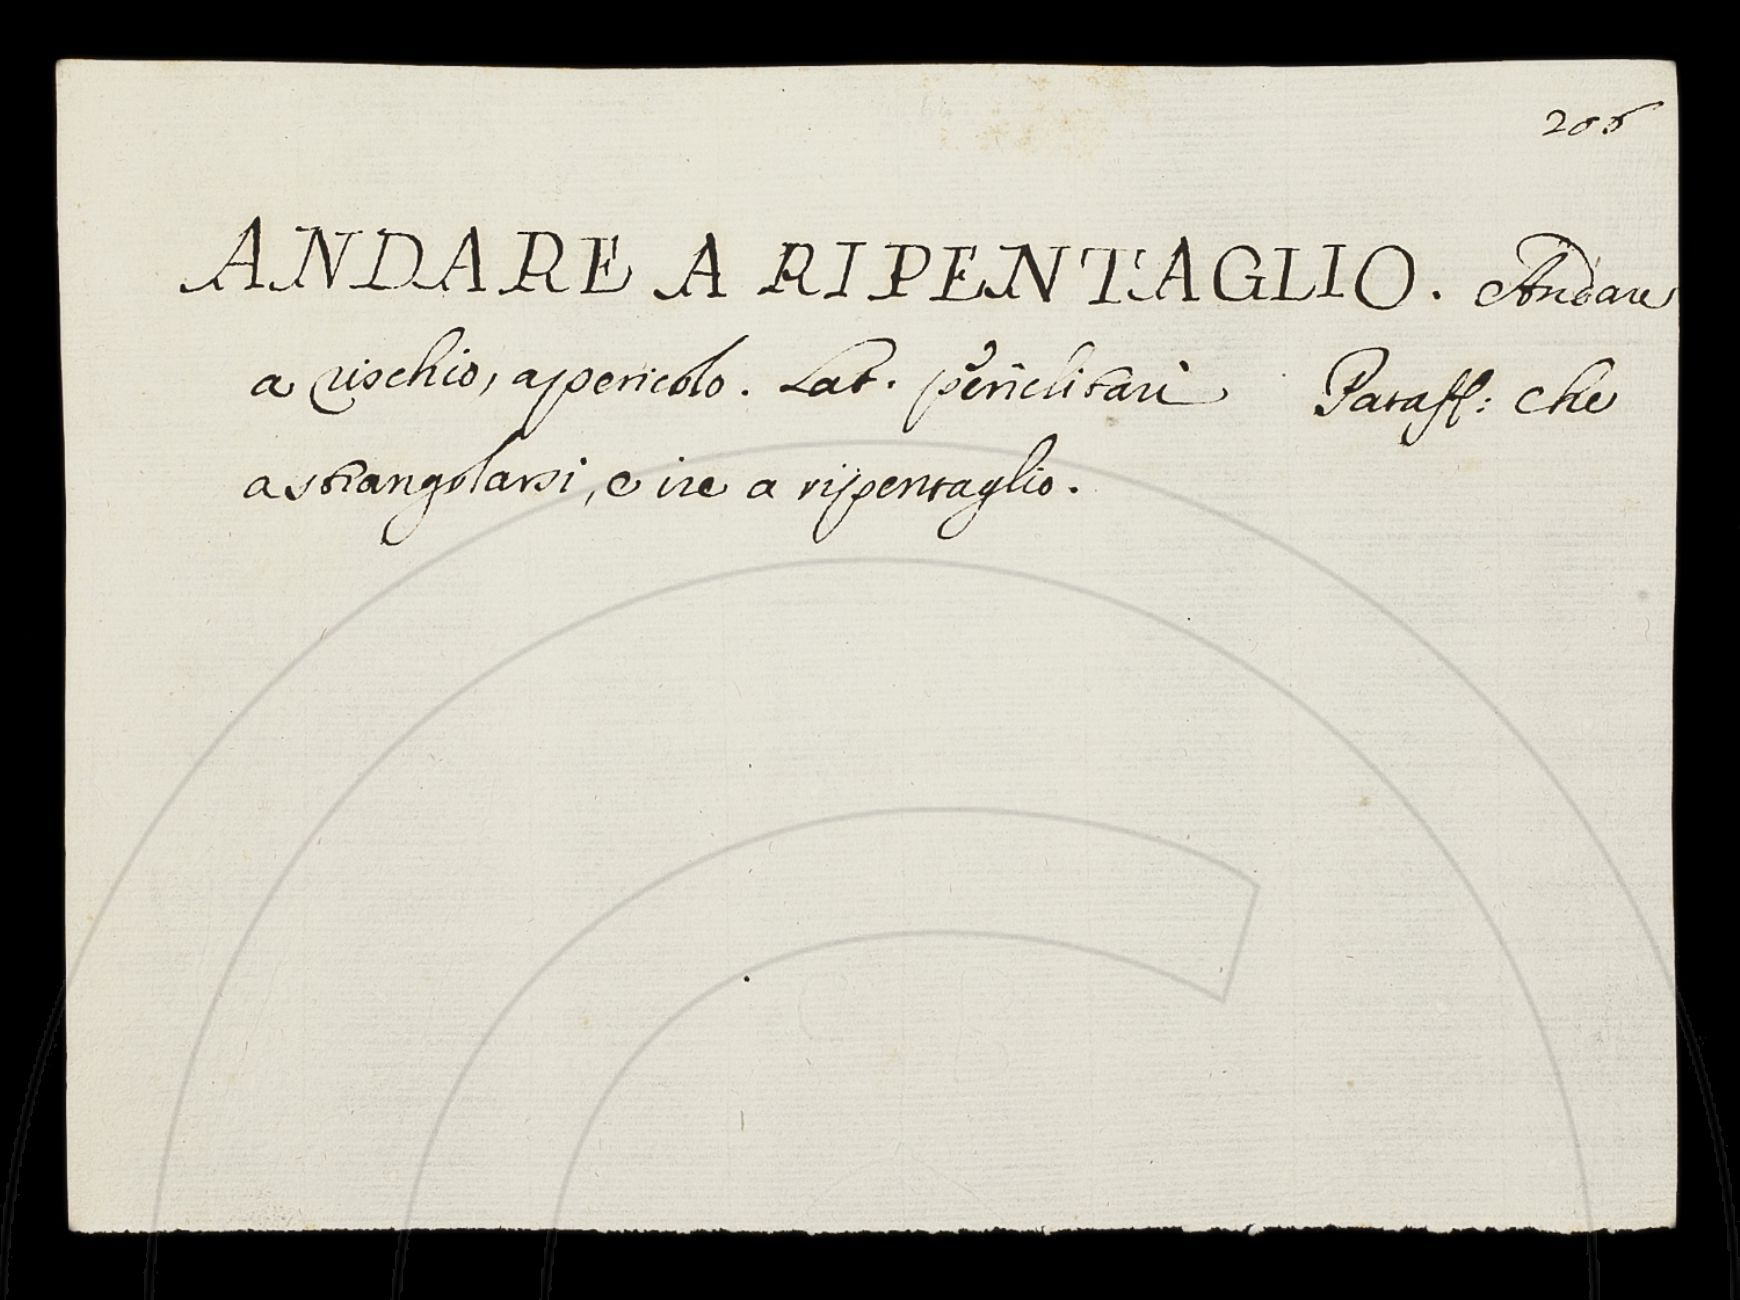 206
ANDARE A RIPENTAGLIO. Andare
a rischio, a pericolo. Lat. periclitari Pataff: che
a strangolarsi, e ire a ripentaglio.